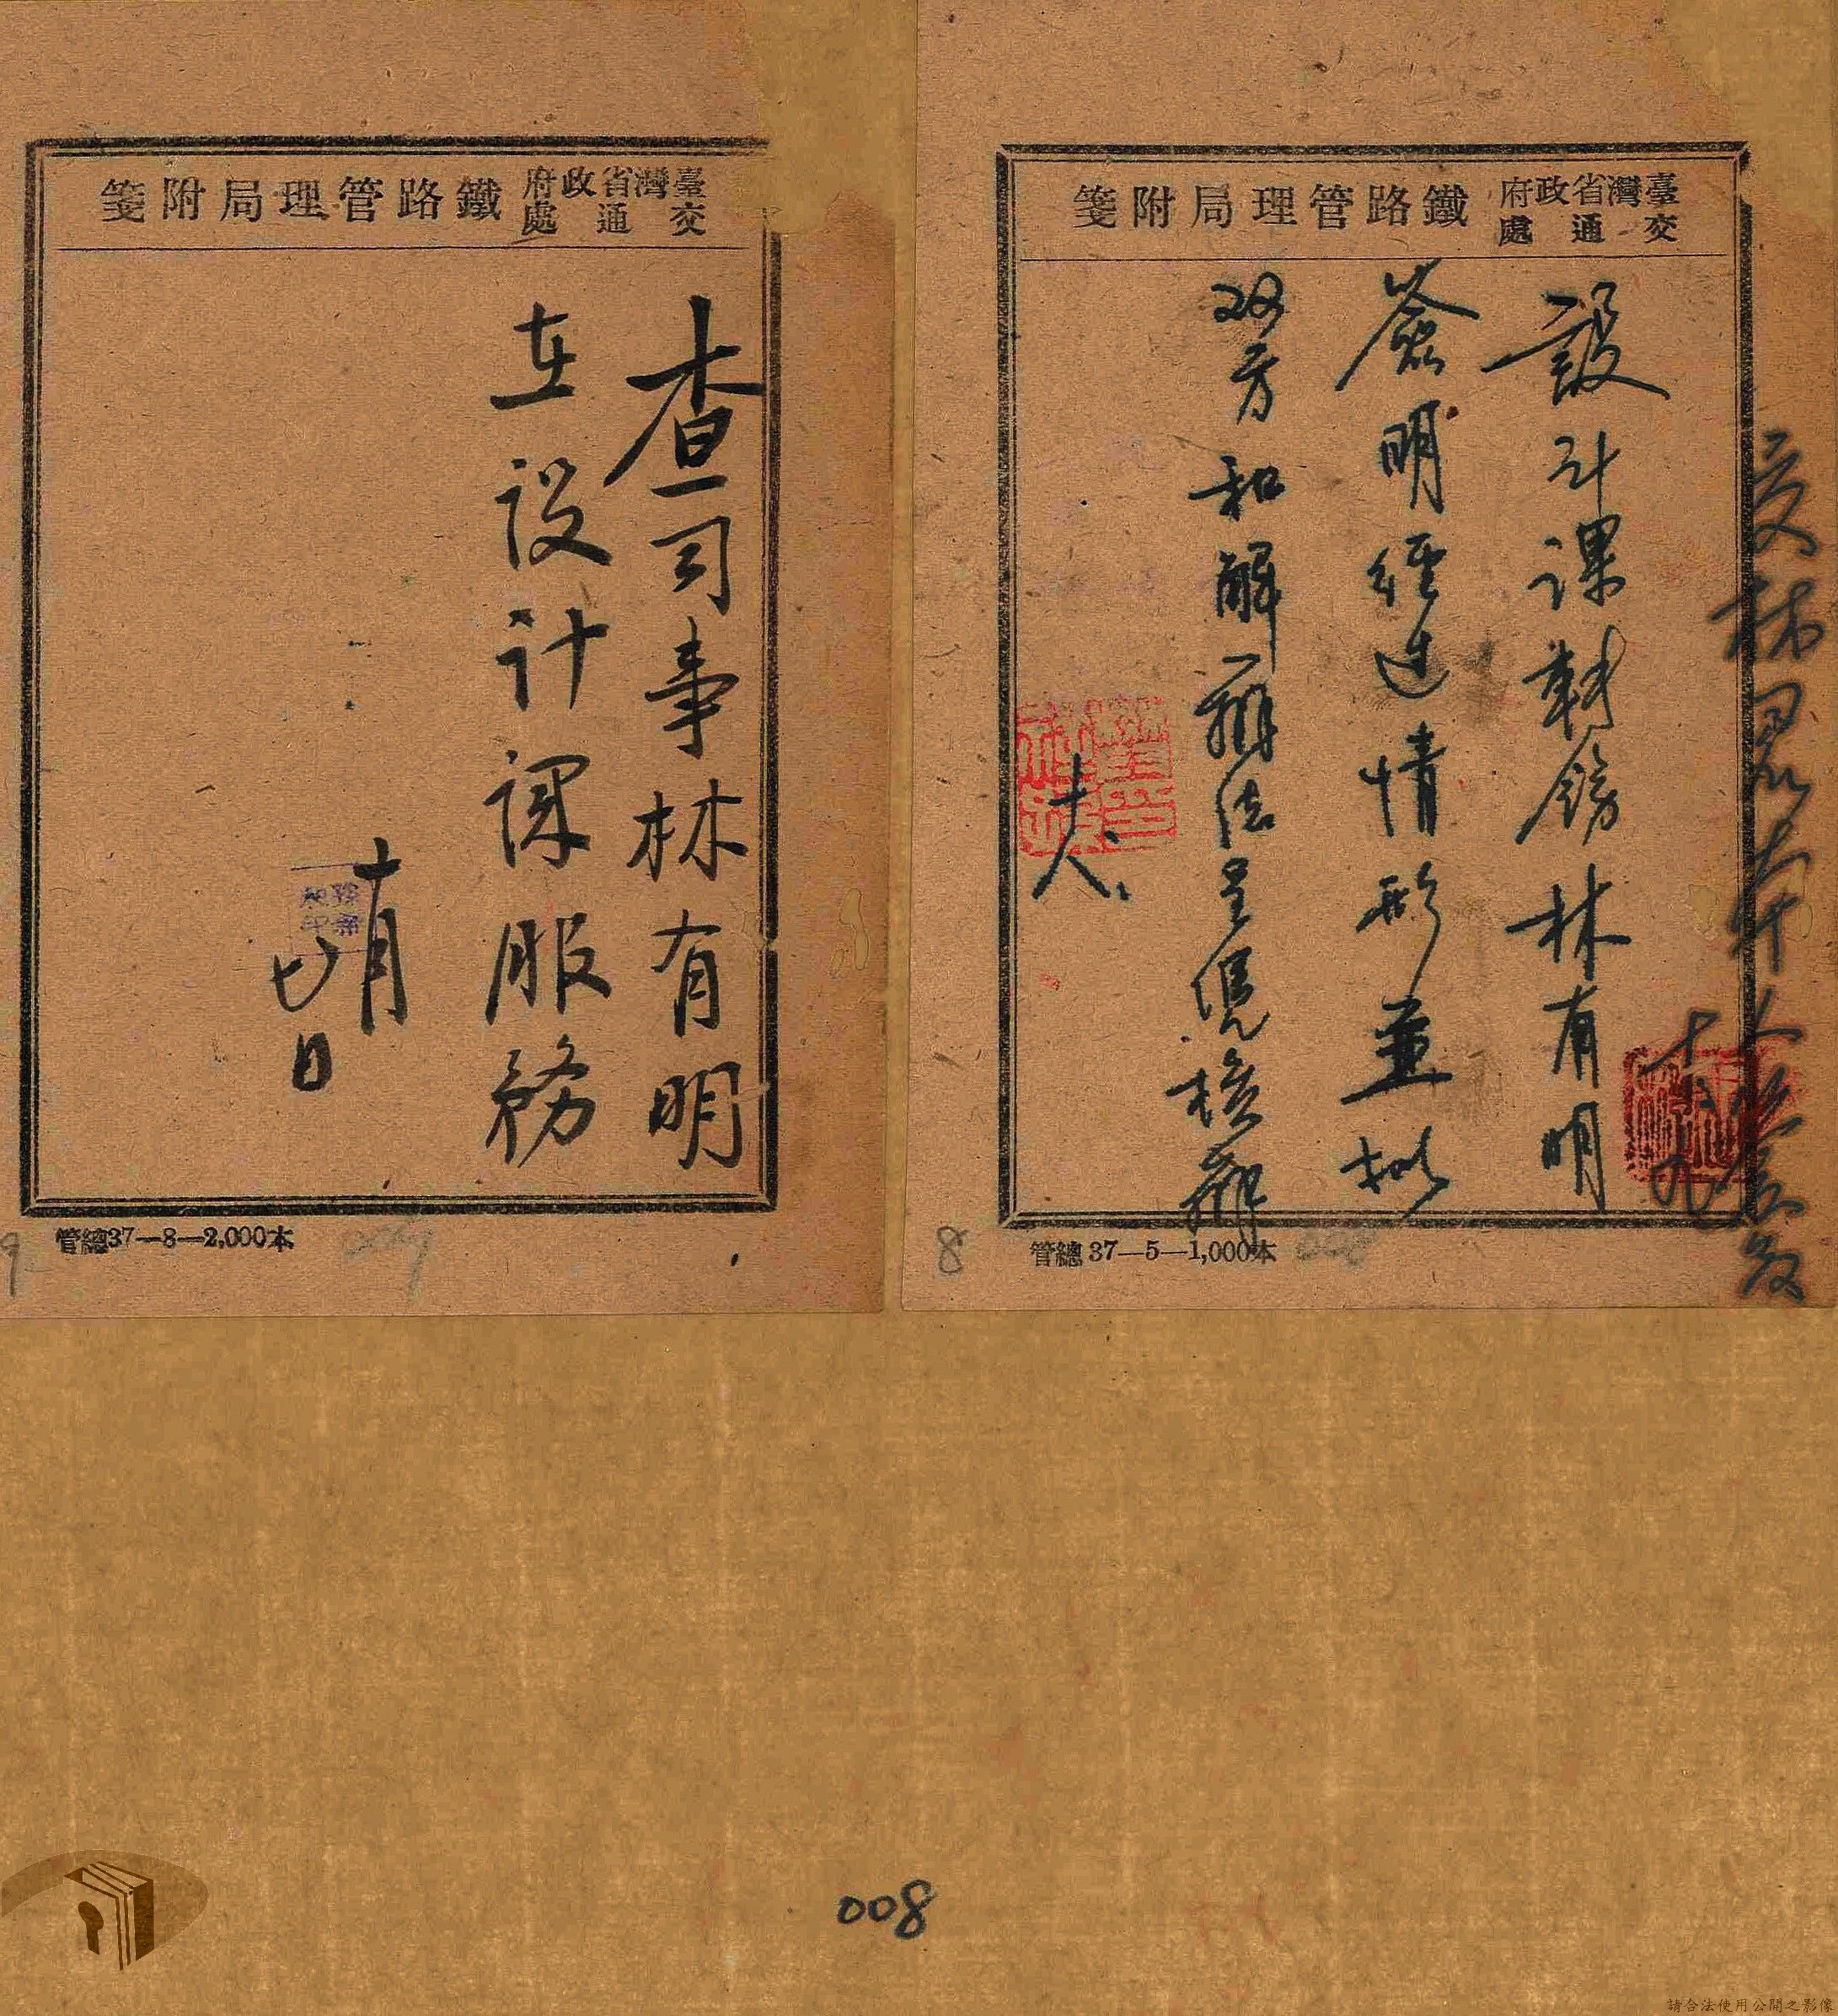 臺灣省政府交通處鐵路管理局附箋
設計課轉飭林有明
簽明經過情形並擬
双方和解辦法呈候核辦
十八、
管總37—5—1,000本
8
臺灣省政府交通處鐵路管理局附箋
查司事林有明
在设计课服務
十月
七日
管總37—8—2,000本
9
008
請合法使用公開之影像